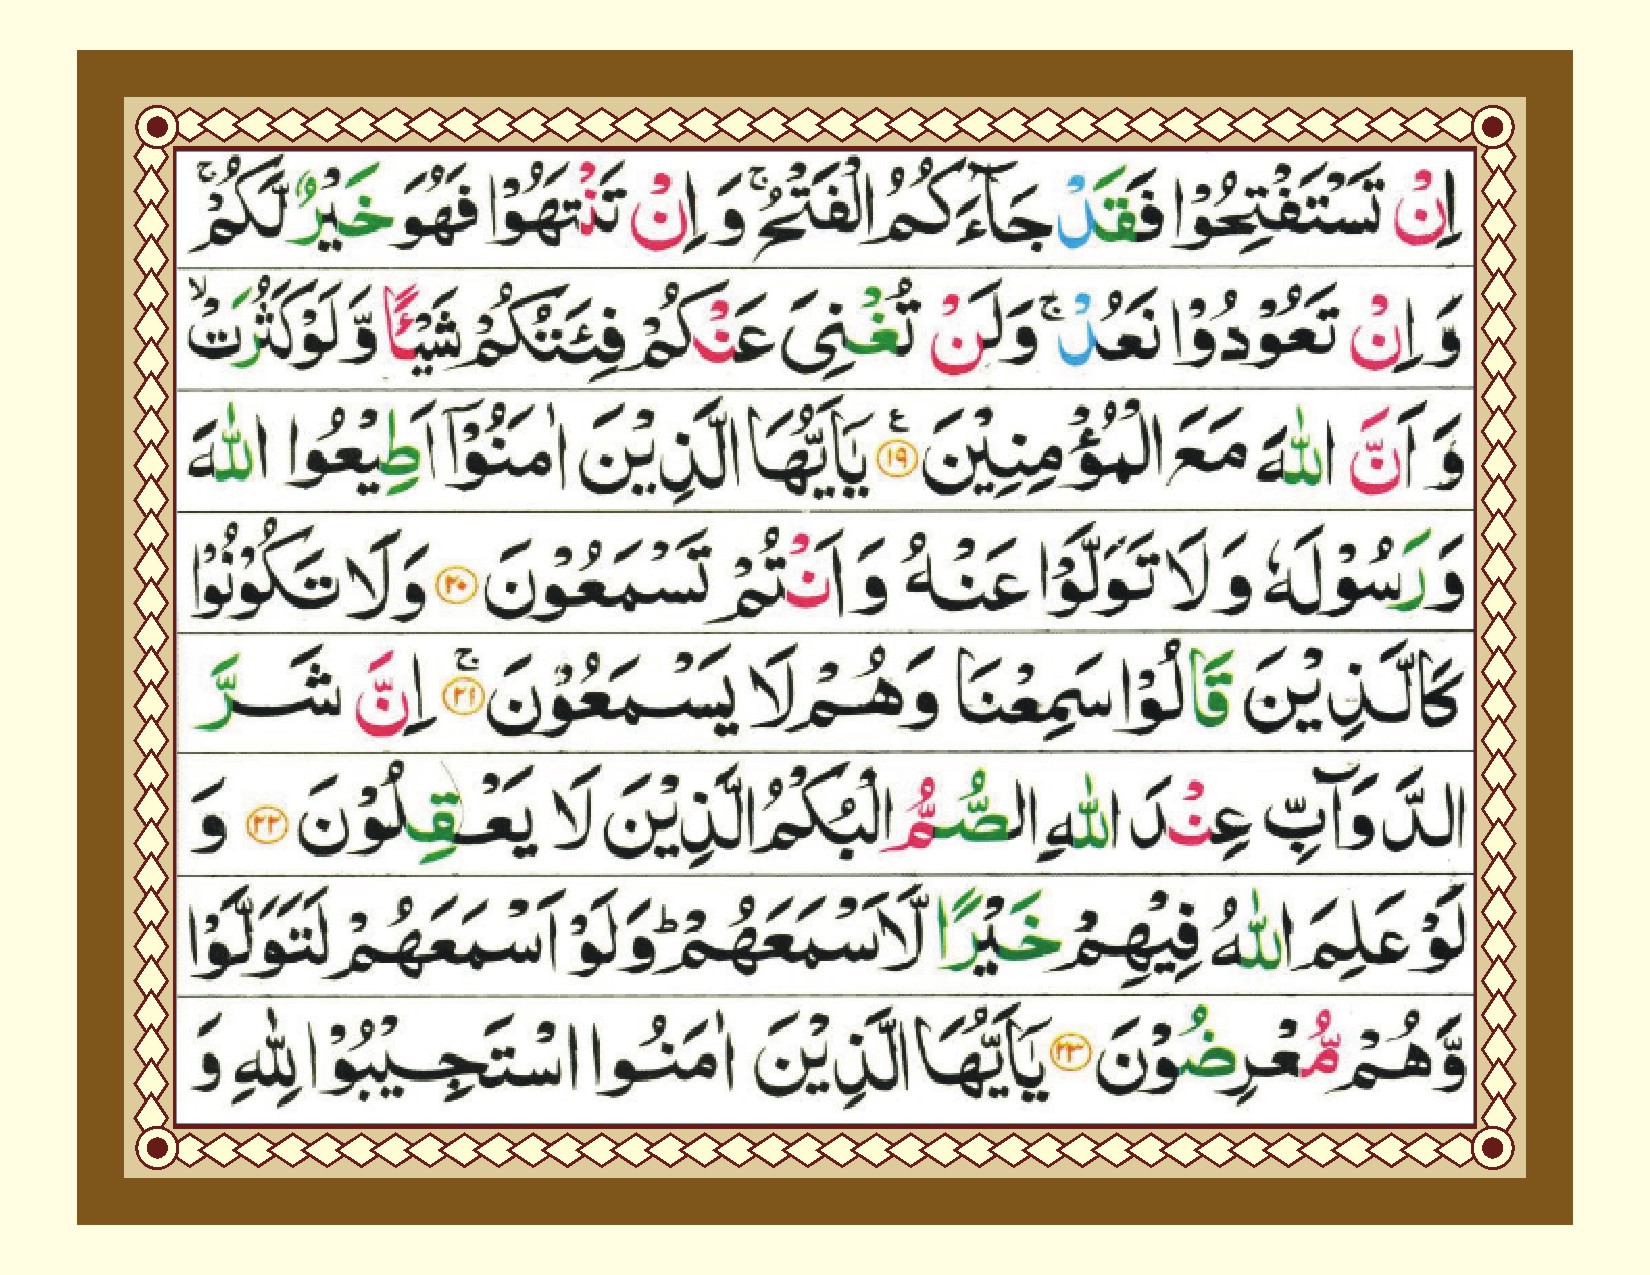 اِنْ تَسْتَفْتِحُوْا فَقَدْ جَآءَكُمُ الْفَتْحُ ۚ وَ اِنْ تَنْتَهُوْا فَهُوَ خَيْرٌ لَّكُمْ ۚ
وَ اِنْ تَعُوْدُوْا نَعُدْ ۚ وَلَنْ تُغْنِیَ عَنْكُمْ فِئَتُكُمْ شَيْـًٔا وَّلَوْ كَثُرَتْ ۙ
وَ اَنَّ اللّٰهَ مَعَ الْمُؤْمِنِيْنَ ﴿۱۹﴾ ع يٰۤاَيُّهَا الَّذِيْنَ اٰمَنُوْۤا اَطِيْعُوا اللّٰهَ
وَ رَسُوْلَهٗ وَ لَا تَوَلَّوْا عَنْهُ وَ اَنْتُمْ تَسْمَعُوْنَ ﴿۲۰﴾ وَلَا تَكُوْنُوْا
كَالَّذِيْنَ قَالُوْا سَمِعْنَا وَهُمْ لَا يَسْمَعُوْنَ ﴿۲۱﴾ ۚ اِنَّ شَرَّ
الدَّوَآبِّ عِنْدَ اللّٰهِ الصُّمُّ الْبُكْمُ الَّذِيْنَ لَا يَعْقِلُوْنَ ﴿۲۲﴾ وَ
لَوْ عَلِمَ اللّٰهُ فِيْهِمْ خَيْرًا لَّاَسْمَعَهُمْ ؕ وَلَوْ اَسْمَعَهُمْ لَتَوَلَّوْا
وَّهُمْ مُّعْرِضُوْنَ ﴿۲۳﴾ يٰۤاَيُّهَا الَّذِيْنَ اٰمَنُوا اسْتَجِيْبُوْا لِلّٰهِ وَ